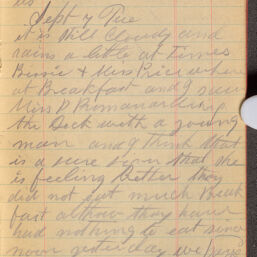 us
Sept 7 Tue
it is Still Cloudy and
rains a little at times
Bessie & Miss Price where
at Breakfast and I saw
Miss P Promanarding
the Deck with a young
man and I think that
is a sure sign that she
is feeling Better they
did not eat much Break
fast altho they have
had nothing to eat since
noon yesterday we have